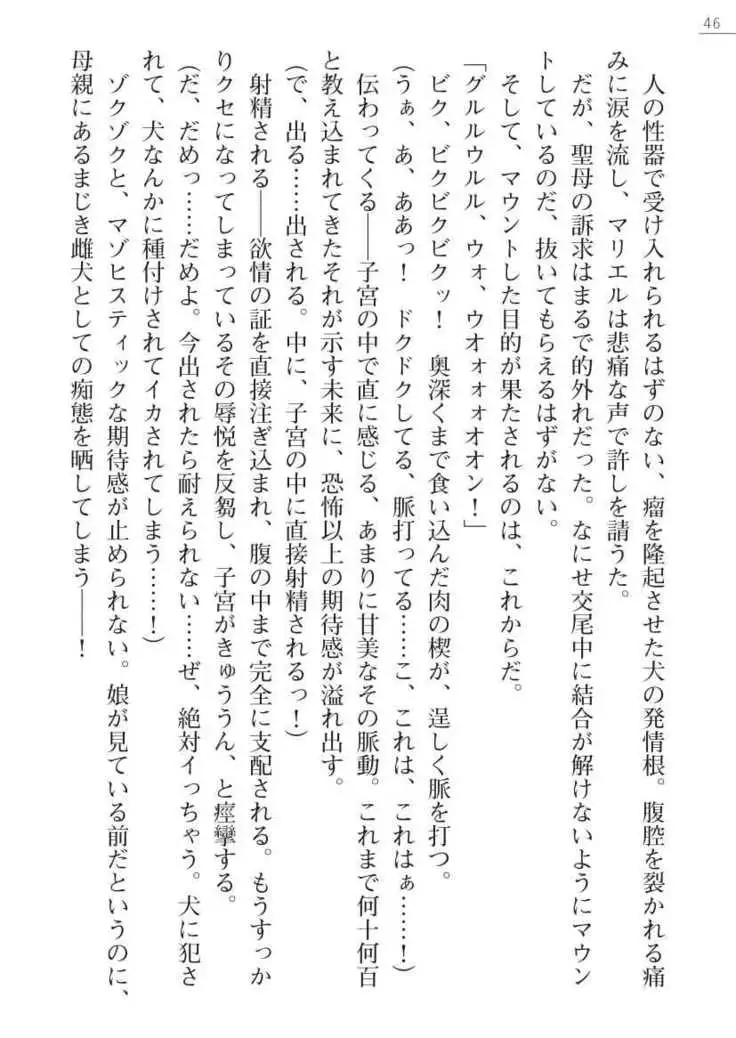 46
人の性器で受け入れられるはずのない、瘤を隆起させた犬の発情根。腹腔を裂かれる痛
みに涙を流し、マリエルは悲痛な声で許しを請うた。
だが、聖母の訴求はまるで的外れだった。なにせ交尾中に結合が解けないようにマウン
トしているのだ、抜いてもらえるはずがない。
そして、マウントした目的が果たされるのは、これからだ。
「グルルウルル、ウォ、ウオォォォオオン！」
ビク、ビクビクビクッ！　奥深くまで食い込んだ肉の楔が、逞しく脈を打つ。
（うぁ、あ、ああっ！　ドクドクしてる、脈打ってる……こ、これは、これはぁ……！）
伝わってくる――子宮の中で直に感じる、あまりに甘美なその脈動。これまで何十何百
と教え込まれてきたそれが示す未来に、恐怖以上の期待感が溢れ出す。
（で、出る……出される。中に、子宮の中に直接射精されるっ！）
射精される――欲情の証を直接注ぎ込まれ、腹の中まで完全に支配される。もうすっか
りクセになってしまっているその辱悦を反芻し、子宮がきゅううん、と痙攣する。
（だ、だめっ……だめよ。今出されたら耐えられない……ぜ、絶対イっちゃう。犬に犯さ
れて、犬なんかに種付けされてイカされてしまう……！）
ゾクゾクと、マゾヒスティックな期待感が止められない。娘が見ている前だというのに、
母親にあるまじき雌犬としての痴態を晒してしまう――！